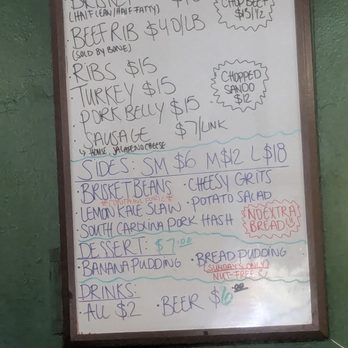 BRISKET
(HALF LEAN/HALF FATTY)
CHOP BEEF
$15/12
• BEEF RIB $40/LB
(SOLD BY BONE)
• RIBS $15
• TURKEY $15
• PORK BELLY $15
• SAUSAGE $7/LINK
HOUSE, JALAPENO CHEESE
CHOPPED
SANDO
$12
SIDES: SM $6 M $12 L $18
• BRISKET BEANS • CHEESY GRITS
• LEMON KALE SLAW • POTATO SALAD
• SOUTH CAROLINA PORK HASH
NO EXTRA
BREAD
DESSERT: $7.00
• BANANA PUDDING • BREAD PUDDING
NUT FREE
DRINKS:
• ALL $2 • BEER $6.00